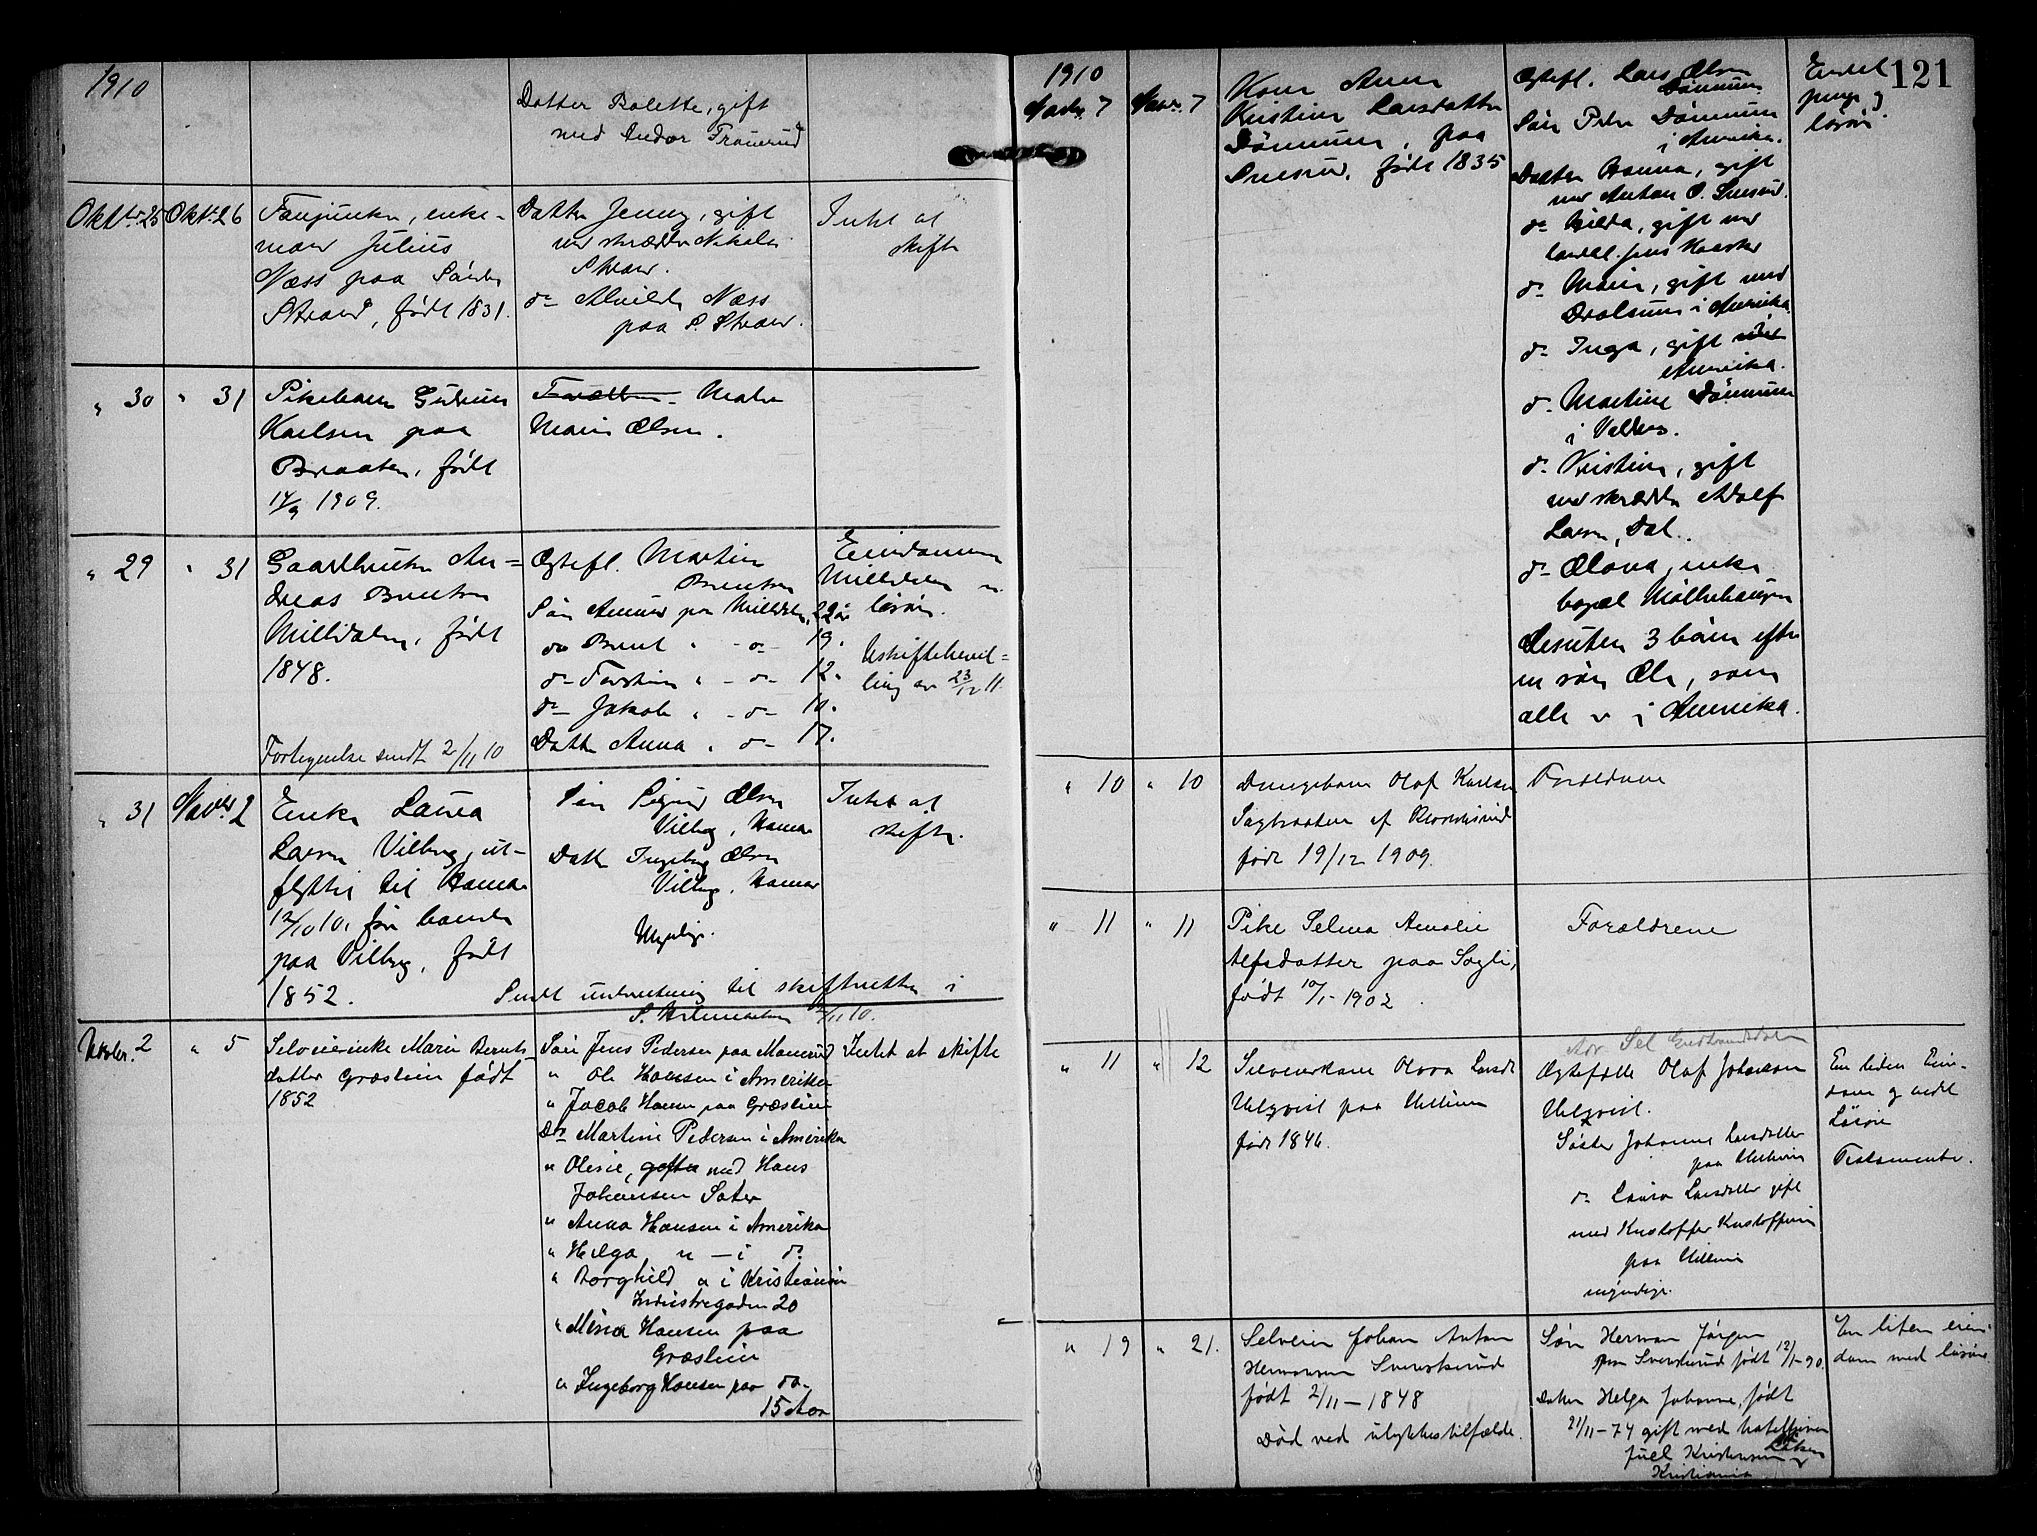 1910
Datter Bolette, gift
med Andor
Oktbr. 25 Okt. 26
Fanejunker, enke-
mand Julius
Næss paa Søndre
Strand, født 1831.
Datter Jenny, gift
med skrædder Nikolai
Strand.
do Alvilde Næss
paa S. Strand.
Intet at
skifte
" 30 " 31
Pikebarn Gudrun
Karlsen paa
Braaten, født
14/9 1909.
Forældre - Moder
Marie Olsen.
" 29 " 31
Gaardbruker An-
dreas Berntsen
Millidalen, født
1848.
Fortegnelse sendt 2/11 10
Ægtefl. Martin
Berntsen
Søn Arnund paa Millidalen, 22 år
do Bernt " - do - 19.
do Torstein " - do - 12.
do Jakob " - do - 10.
Datter Anna " do - 17.
Eiendommen
Millidalen
løsøre.
Uskiftebevil-
ling av 23/12 11.
" 31 Novbr. 2
Enke Laura
Larsen Vilberg, ut-
flyttet til Hamar
12/10 10, før boende
paa Vilberg, født
1852.
Søn Sigurd Olsen
Vilberg, Hamar
Datter Ingeborg Olsen
Vilberg, Hamar
Myndige.
Intet at
skifte.
Sendt underretning til skifteretten i
S. Hedemarken 2/11 10.
Novbr. 2 " 5
Selveierenke Marie Bernts-
datter Græslien født
1852
Søn Jens Pedersen paa Manerud
" Ole Hansen i Amerika
" Jacob Hansen paa Græslien
Dtr Martine Pedersen i Amerika
" Olesie, gift med Hans
Johansen Sater
" Anna Hansen i Amerika
" Helga " - i do
" Borghild " i Kristiania
Industregaden 20
" Mina Hansen paa
Græslien
" Ingeborg Hansen paa do-
15 Aar
Intet at skifte
121
1910
Novbr. 7 Novr. 7
Kone Anna
Kristine Larsdatter
Dønnum, paa
født 1835
Ægtefl. Lars Olsen
Dønnum
Søn Peder Dønnum
i Amerika.
Datter Hanna, gift
med Anton O.
do Hilda, gift med
Jens
do Marie, gift med
i Amerika
do Inga, gift
Amerika.
do Martine Dønnum
i Valdres.
do Kristine, gift
med skrædder Adolf
Larsen, Dal.
do Olava, enke
bopæl Møllerhaugen
Desuten 3 børn efter
en søn Ole, som
alle er i Amerika.
Endel
penge og
løsøre.
" 10 " 10
Drengebarn Olaf Karlsen
Sagbraaten af
født 19/12 1909.
Forældrene
" 11 " 11
Pike Selma Amalie
Alfsdatter paa Sagli,
født 10/1 1902.
Forældrene
" 11 " 12
Selveierkone Olava Larsdr
paa
født 1846.
Adr Sel Gudbrandsdalen
Ægtefælle Olaf Johansen
Søster Johanne Larsdatter
paa
do Laura Larsdatter gift
med Kristoffer Kristoffersen
paa
myndige.
En liden Eien-
dom og endel
Løsøre
Testamente.
" 19 " 21.
Selveier Johan Anton
Hermansen Svenskerud
født 2/11 - 1848
Død ved ulykkestilfælde.
Søn Herman Jørgen
paa Svenskerud født 12/1-90.
Datter Helga Johanne, født
21/11-74 gift med
Juel Kristensen
Kristiania
En liten eien-
dom med løsøre